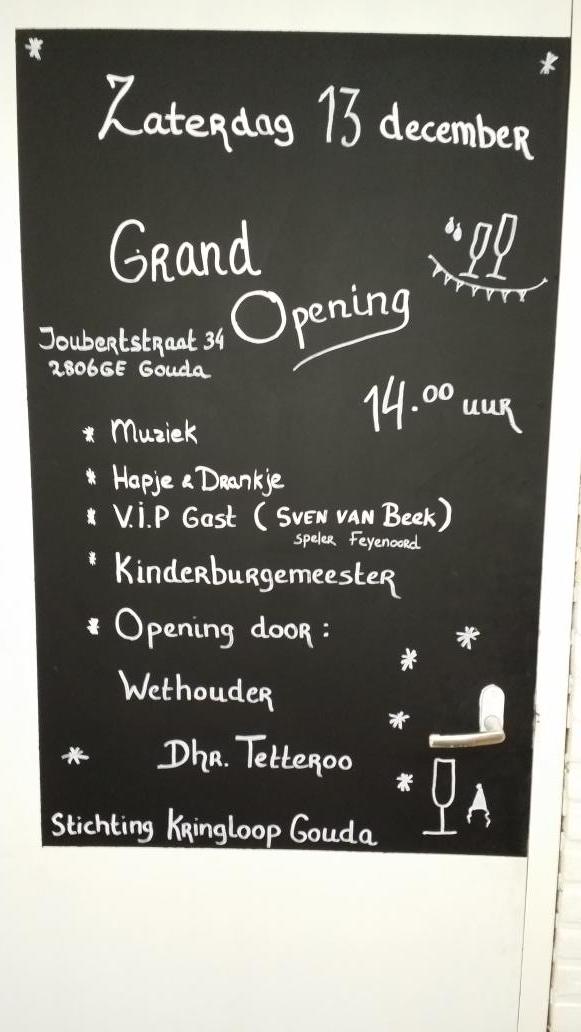 Zaterdag 13 december
Grand
Opening
Joubertstraat 34
2806GE Gouda
14.00 uur
* Muziek
* Hapje & Drankje
* V.I.P Gast (Sven van Beek)
speler Feyenoord
* Kinderburgemeester
* Opening door:
Wethouder
Dhr. Tetteroo
Stichting Kringloop Gouda